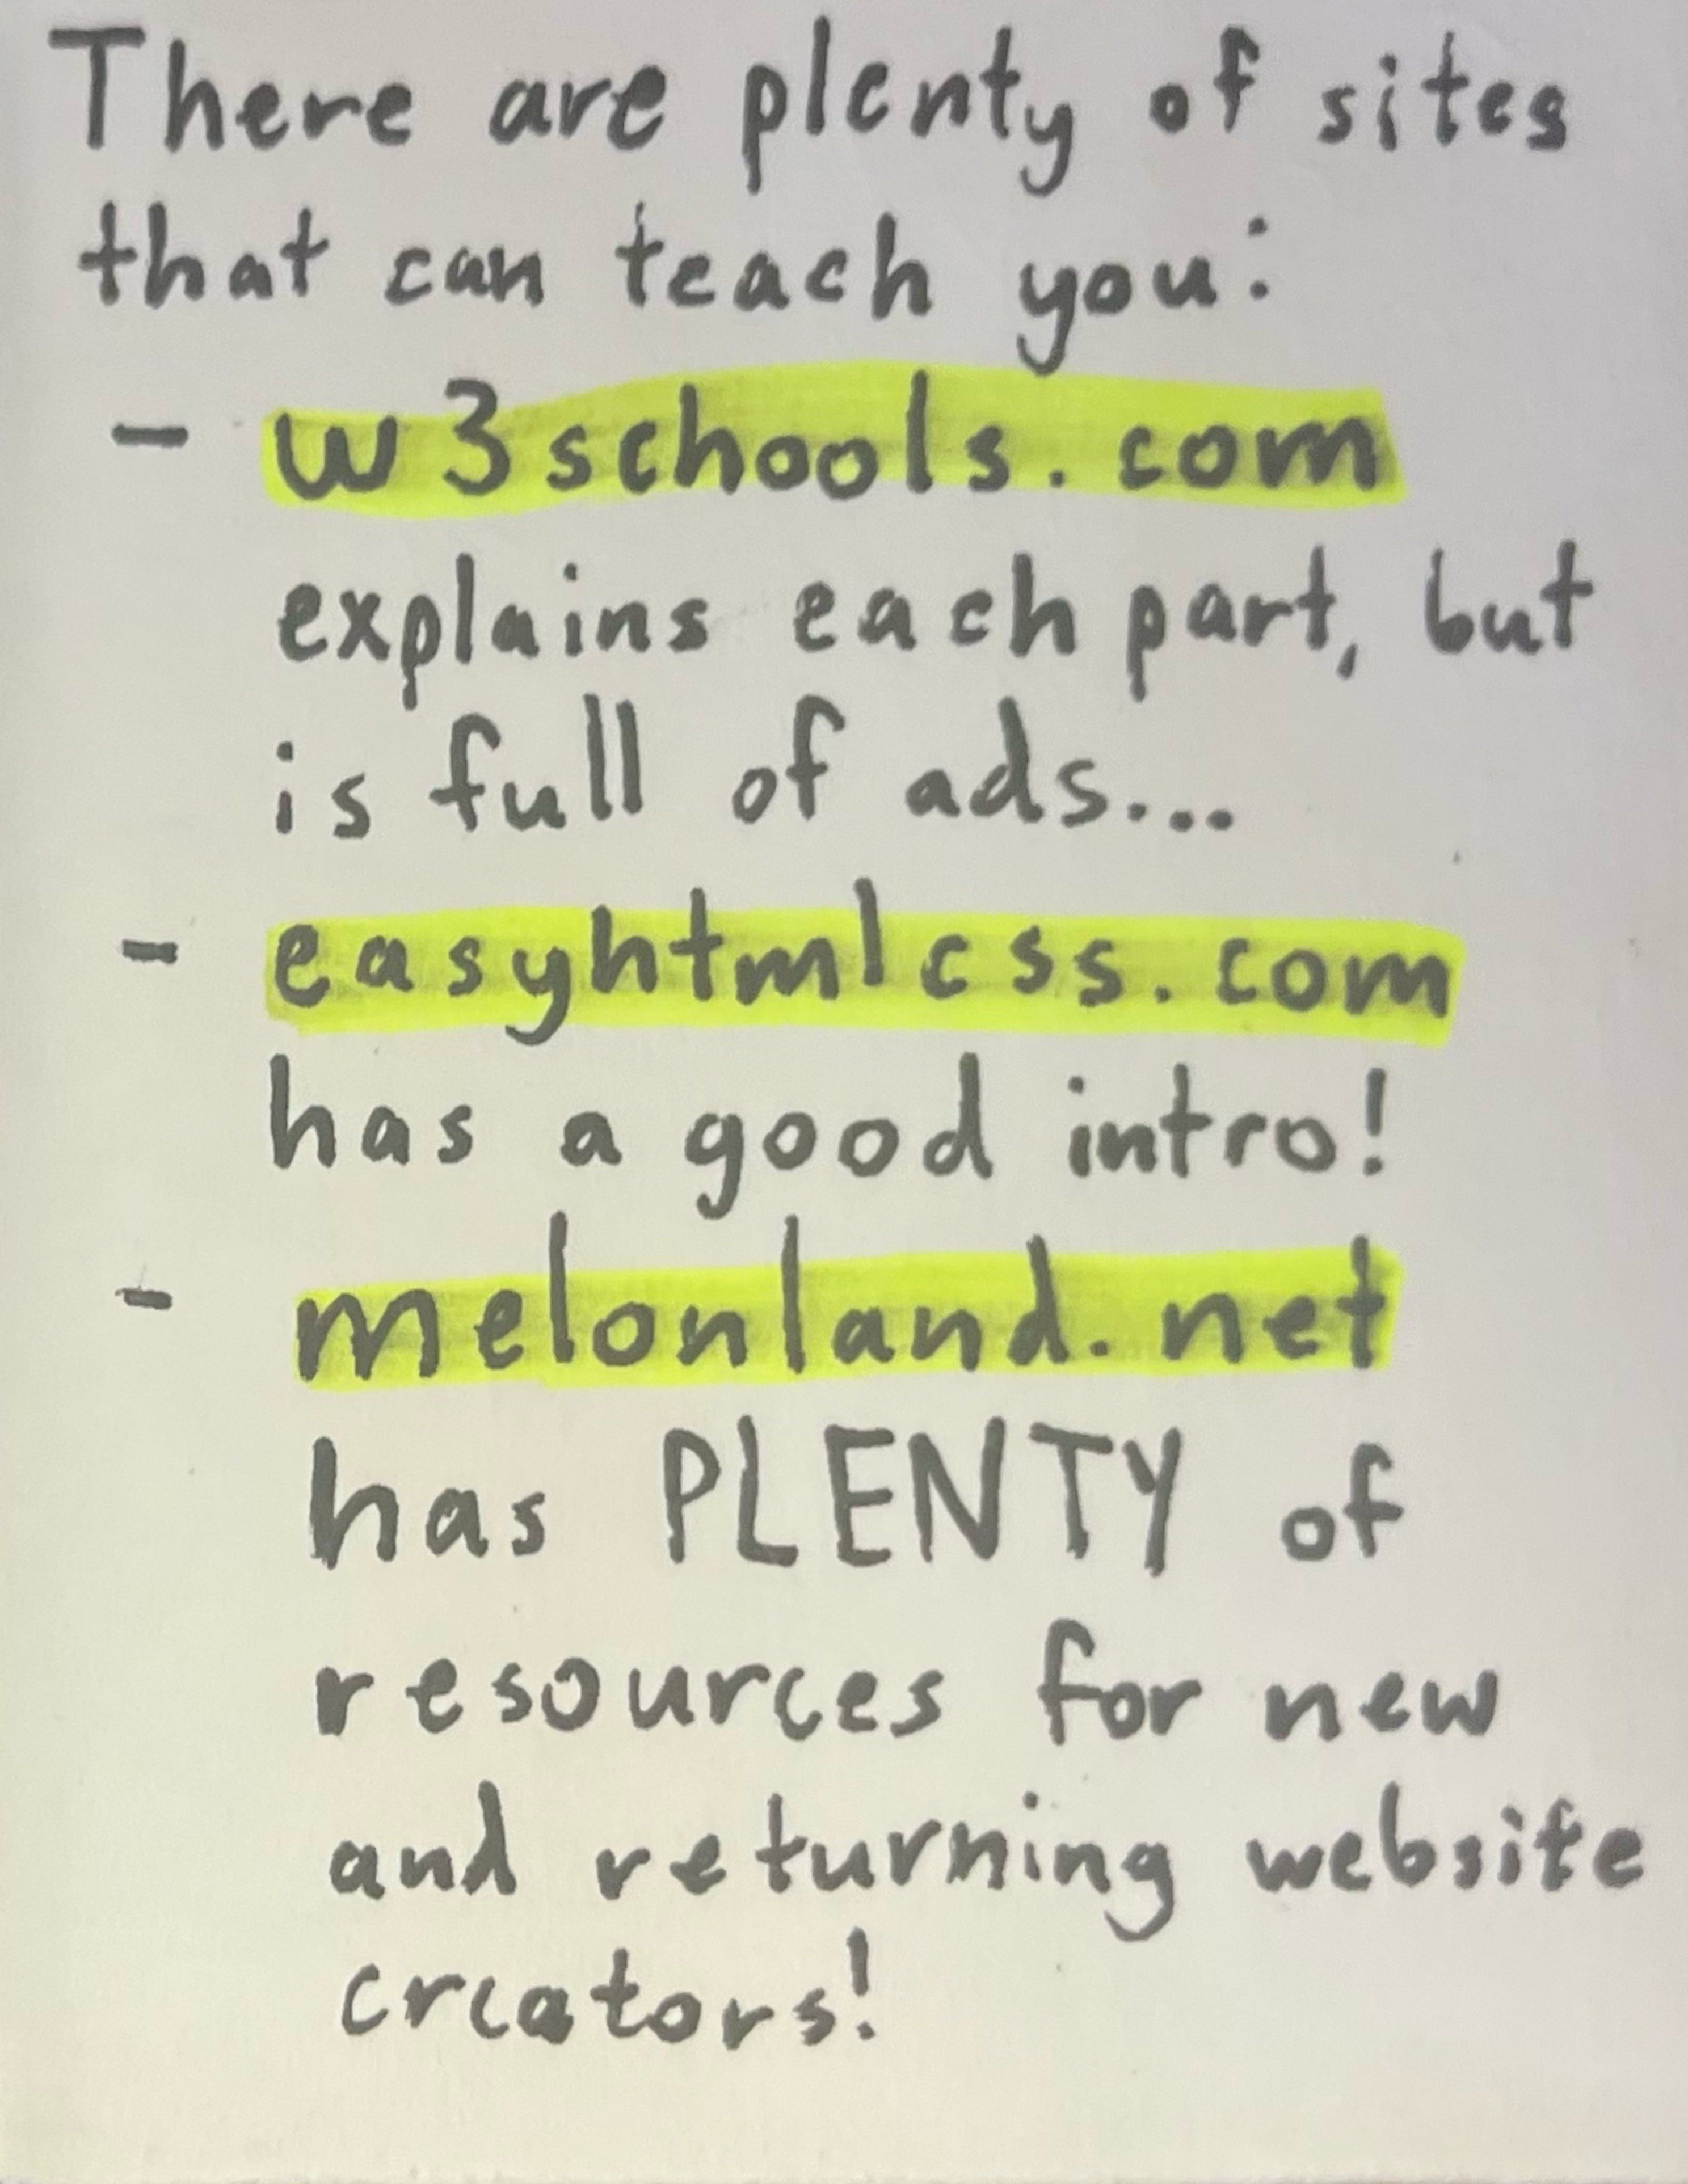 There are plenty of sites
that can teach you:
- w3schools.com
explains each part, but
is full of ads...
- easyhtmlcss.com
has a good intro!
- melonland.net
has PLENTY of
resources for new
and returning website
creators!